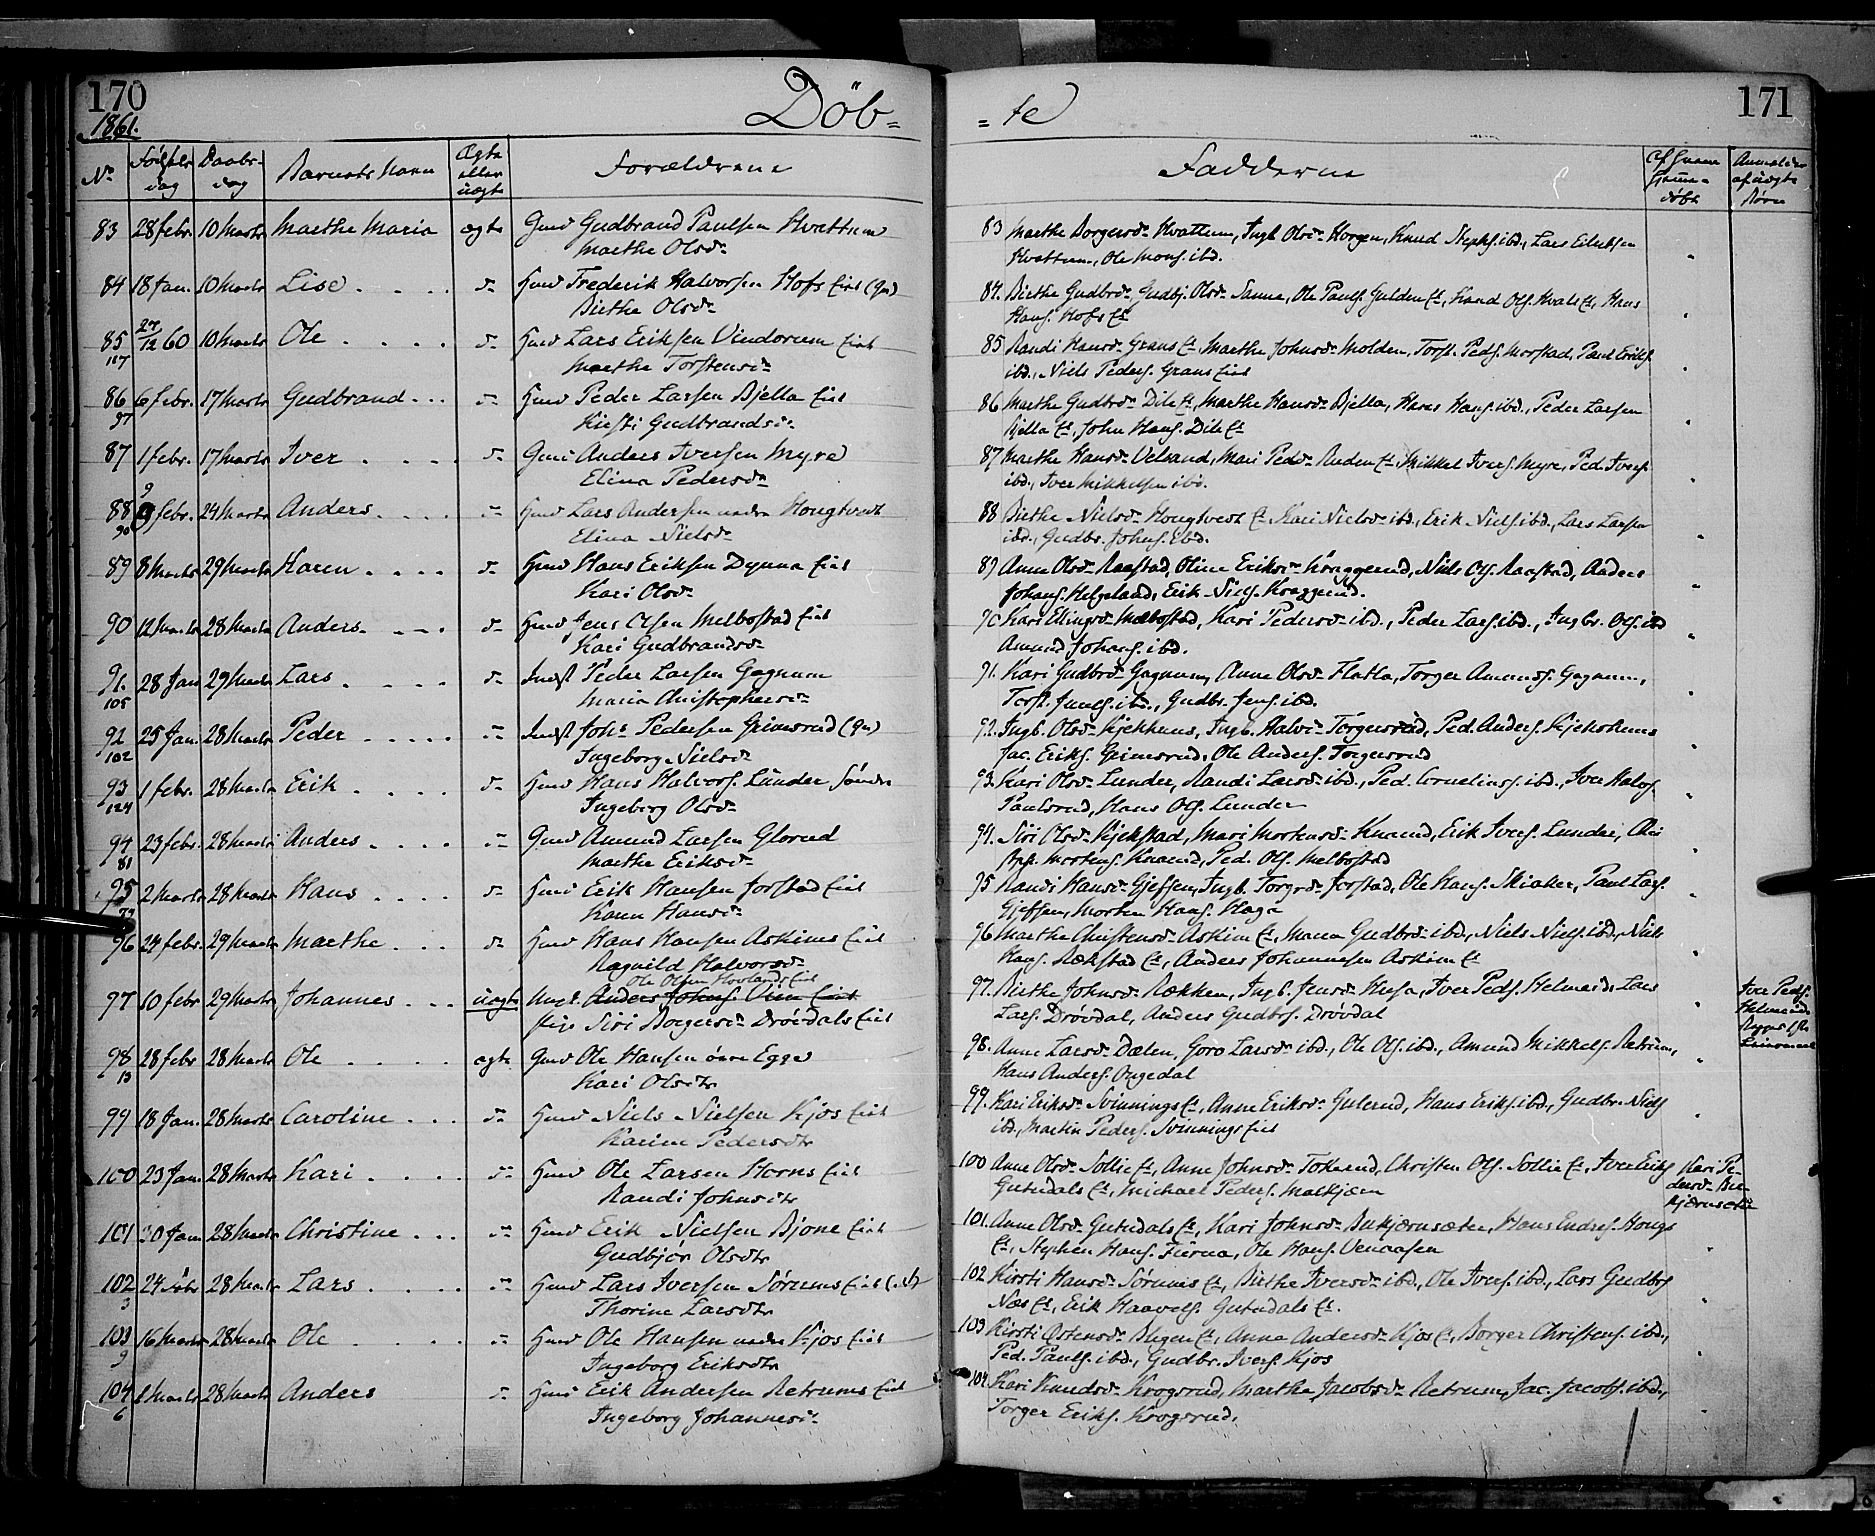 170
1861.
Döb-
No
Fødsels dag
Daabs- dag
Barnets Navn
Ægte eller uægte
Forældrene
83 28 febr. 10 Marts Marthe Maria ægte Gmd Gudbrand Paulsen Hvattum
Marthe Olsd.
84 18 Jan. 10 Marts Lise Hmd Frederik Halvorsen Hofs Eiet (Gn)
Birthe Olsd.
85 27/12 60 10 Marts Ole Hmd Lars Eriksen Vindorum Eiet
107 Marthe Torstensd.
86 6 febr. 17 Marts Gudbrand Hmd Peder Larsen Bjella Eiet
97 Kirsti Gudbrandsd.
87 1 febr. 17 Marts Iver Gmd Anders Iversen Myre
Elina Pedersd.
88 9 febr. 24 Marts Anders Hmd Lars Andersen nedre Hougtvedt
90 Elina Nielsd.
89 8 Marts 29 Marts Karen Hmd Hans Eriksen Dynna Eiet
Kari Olsd.
90 12 Marts 28 Marts Anders Hmd Jens Olsen Melbostad Eiet
Kari Gudbrandsd.
91. 28 Jan 29 Marts Lars Indst Peder Larsen Gagnum
105 Maria Christophersd.
92 25 Jan. 28 Marts Peder Indst Johs Pedersen Grimsrud (Gn)
102 Ingeborg Nielsd.
93 1 febr. 28 Marts Erik Hmd Hans Halvors. Lunder Søndre
124 Ingeborg Olsd.
94 23 febr. 28 Marts Anders Gmd Amund Larsen Glorud
81 Marthe Eriksd.
95 2 Marts 28 Marts Hans Hmd Erik Hansen Jorstad Eiet
79 Karen Hansd.
96 24 febr. 29 Marts Marthe Hmd Hans Hansen Askims Eiet
Ragnild Halvorsd.
Ole Olsen Hovlands Eiet
97 10 febr 29 Marts Johannes uægte Ungk. Anders Johns. Vien Eiet
Pige Siri Borgersd. Drövdals Eiet
98 28 febr 28 Marts Ole ægte Gmd Ole Hansen övre Egge
13 Kari Olsdtr
99 18 Jan. 28 Marts Caroline Hmd Niels Nielsen Kjos Eiet
Karine Pedersdtr
100 23 Jan. 28 Marts Kari Hmd Ole Larsen Horns Eiet
Randi Johnsdtr
101 30 Jan 28 Marts Christine Hmd Erik Nielsen Bjone Eiet
Gudbjör Olsdtr
102 24 febr 28 Marts Lars Hmd Lars Iversen Sörums Eiet
3 Thorine Larsdtr
103 16 Marts 28 Marts Ole Hmd Ole Hansen nedre Kjos Eiet
9 Ingeborg Eriksdtr
104 8 Marts 28 Marts Anders Hmd Erik Andersen Retrums Eiet
6 Ingeborg Johannesd.
=te
171
Fadderne
Af hvem hjemme- döbt
Anmelder af uægte Börn
83 Marthe Borgersd. Hvattum, Ingb. Olsd. Horgen, Knud Steph. ibd., Lars Eriksen
Hvattum, Ole Mons. ibd.
84. Birthe Gudbrd. Gudbj. Olsd. Sanne, Ole Pauls. Gulden Et, Hans
Hans. Hofs Et
85 Randi Hansd. Grans Et, Marthe Johnsd. Molden, Torst. Peds. Morstad, Paul Eriks.
ibd., Niels Peders. Grans Eiet
86 Marthe Gudbrd. Dile Et, Marthe Hansd. Bjella, Hans Hans. ibd., Peder Larsen
Bjella Et, John Hans. Dile Et
87 Marthe Hansd. Velsand, Mari Pedsd. Ruden Et, Mikkel Ivers. Myre, Ped. Ivers.
ibd., Iver Mikkelsen ibd.
88 Birthe Nielsd. Hougtvedt Et, Kari Nielsd. ibd., Erik Niels. ibd., Lars Larsen
ibd., Gudbr. Johns. Ibd.
89 Anne Olsd. Raastad, Oline Eriksd. Kraggerud, Niels Ols. Raastad, Anders
Johans. Helgeland, Erik Niels. Kraggerud.
90 Kari Ellingsd. Melbostad, Kari Pedersd. ibd., Peder Lars. ibd., Ingbr. Ols. ibd
Amund Johans. ibd.
91. Kari Gudbrd. Gagnum, Anne Olsd. Flatla, Torger Amunds. Gagnum,
Torst. Jens. ibd., Gudbr. Jens. ibd.
92. Ingb. Olsd. Kjekkens, Ingb. Halvd. Torgersrud, Ped. Anders.
Jac. Eriks. Grimsrud, Ole Anders. Torgersrud
93. Kari Olsd. Lunder, Randi Larsd. ibd., Ped. Cornelius. ibd., Iver Halvs.
Paulsrud, Hans Ols. Lunder
94. Siri Olsd. Kjekstad, Mari Mortensd. Knarud, Erik Ivers. Lunder,
Mortens. Knarud, Ped. Ols. Melbostad
95 Randi Hansd. Gjefsen, Ingb. Torgrd. Jorstad, Ole Hans. Skiaker, Paul Lars.
Gjefsen, Morten Hans. Haga
96 Marthe Christensd. Askim Et, Maren Gudbrd. ibd., Niels Niels. ibd., Niels
Hans. Rækstad Et, Anders Johannesen Askim Et
97. Birthe Johnsd. Rækken, Ingb. Jensd. Husa, Iver Peds. Helmeid, Lars
Lars. Drövdal, Anders Gudbrs. Drövdal
Iver Peds.
Helmeid
98. Anne Larsd. Dælen, Goro Larsd. ibd., Ole Ols. ibd., Amund Mikkels. Retrum,
Hans Anders. Ongedal
99. Kari Eriksd. Svinnings Et, Anne Eriksd. Gulerud, Hans Eriks. ibd., Gudbr. Niels
ibd., Martin Peders. Svinnings Eiet
100 Anne Olsd. Sollie Et, Anne Johnsd. Tokerud, Christen Ols. Sollie Et, Iver Eriks
Gutudals Et, Michael Peders. Malkjern
Kari Pe-
dersd.
101. Anne Olsd. Gutudals Et, Kari Johnsd. Bukjernsæter, Hans Endres. Hougs
Et, Stephen Hans. Fierua, Ole Hans. Venaasen
102 Kirsti Hansd. Sörums Et, Birthe Iversd. ibd., Ole Ivers. ibd., Lars Gudbrs
Næs Et, Erik Haavels. Gutudals Et.
103 Kirsti Østensd. Blegen Et, Anne Andersd. Kjos Et, Borger Christens. ibd.,
Ped. Pauls. ibd., Gudbr. Ivers. Kjos
104. Kari Knudsd. Krogsrud, Marthe Jacobsd. Retrum, Jac. Jacobs. ibd.,
Torger Eriks. Krogsrud.